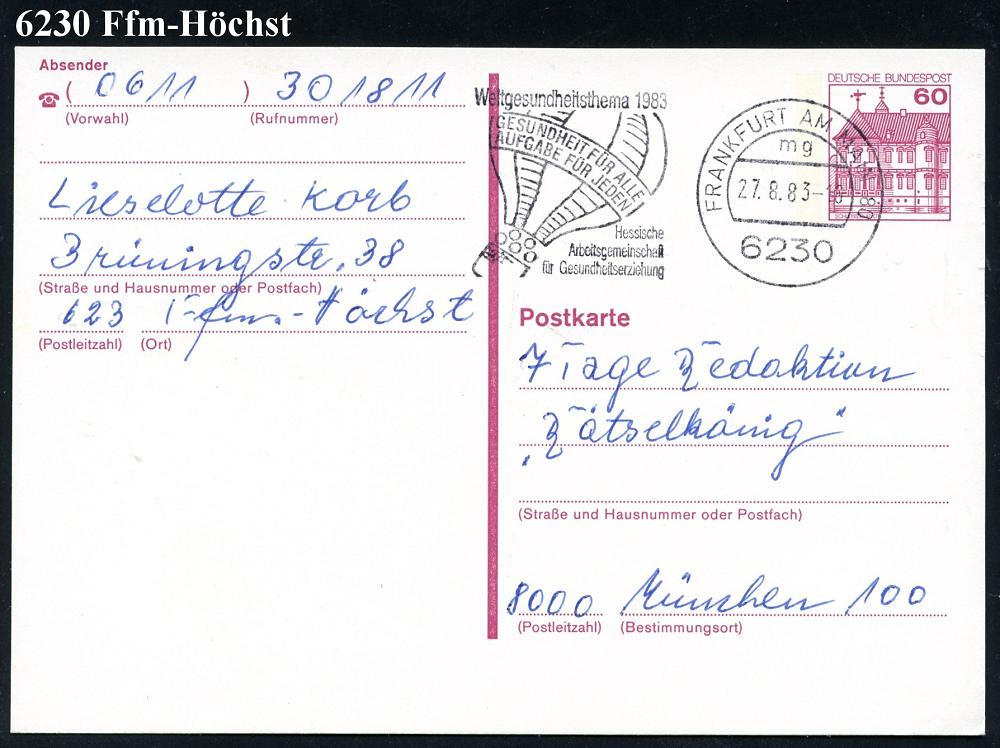 6230 Ffm-Höchst
Absender
( 0611 ) 301811
(Vorwahl) (Rufnummer)
Lieselotte Korb
Brüningstr. 38
(Straße und Hausnummer oder Postfach)
623 Ffm.-Höchst
(Postleitzahl) (Ort)
Weltgesundheitsthema 1983
GESUNDHEIT FÜR ALLE
AUFGABE FÜR JEDEN
Hessische
Arbeitsgemeinschaft
für Gesundheitserziehung
FRANKFURT AM MAIN 80
mg
27.8.83-18
6230
DEUTSCHE BUNDESPOST
60
Postkarte
7 Tage Redaktion
„Rätselkönig"
(Straße und Hausnummer oder Postfach)
8000 München 100
(Postleitzahl) (Bestimmungsort)